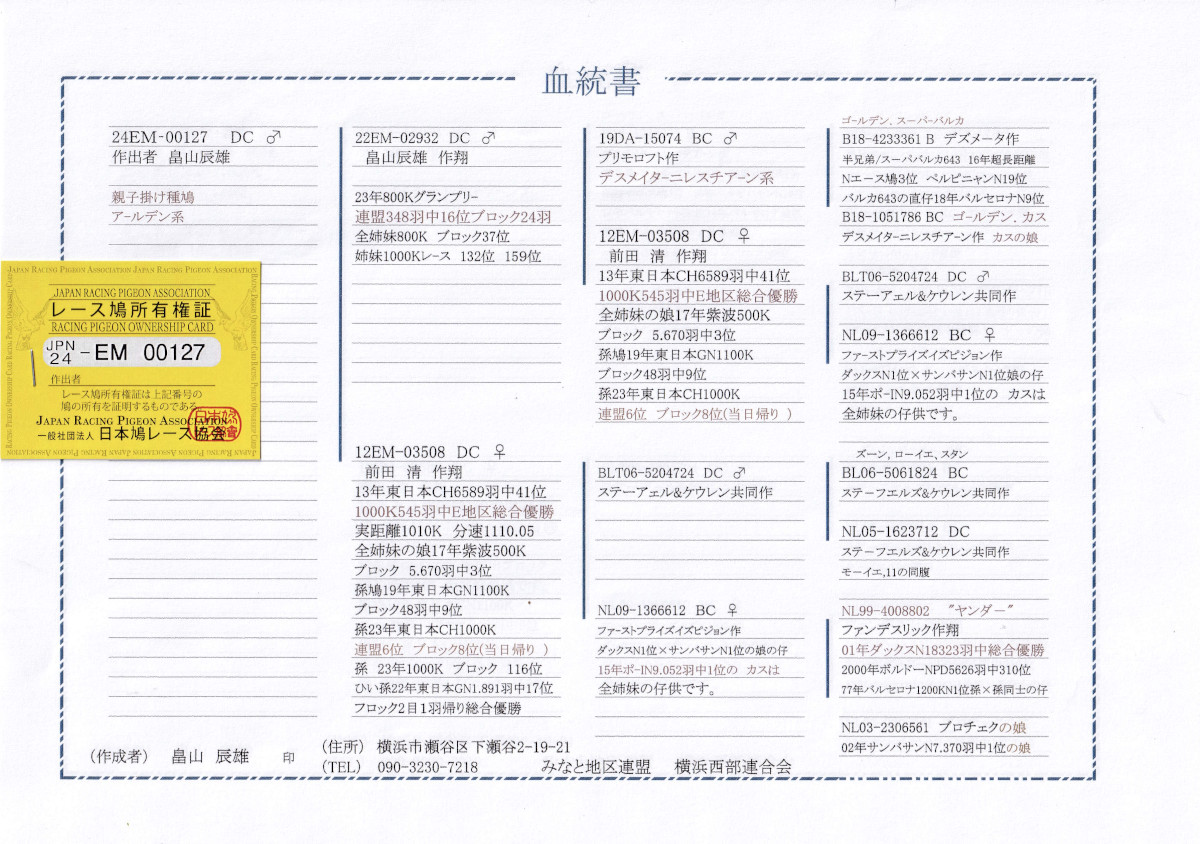 血統書
24EM-00127 DC ♂
作出者 畠山辰雄
親子掛け種鳩
アールデン系
JAPAN RACING PIGEON ASSOCIATION JAPAN RACING PIGEON ASSOCIATION
JAPAN RACING PIGEON ASSOCIATION
レース鳩所有権証
RACING PIGEON OWNERSHIP CARD
JPN
24 - EM 00127
作出者
レース鳩所有権証は上記番号の
鳩の所有を証明するものである
JAPAN RACING PIGEON ASSOCIATION
一般社団法人 日本鳩レース協会
22EM-02932 DC ♂
畠山辰雄 作翔
23年800Kグランプリ-
連盟348羽中16位ブロック24羽
全姉妹800K ブロック37位
姉妹1000Kレース 132位 159位
12EM-03508 DC ♀
前田 清 作翔
13年東日本CH6589羽中41位
1000K545羽中E地区総合優勝
実距離1010K 分速1110.05
全姉妹の娘17年紫波500K
ブロック 5.670羽中3位
孫鳩19年東日本GN1100K
ブロック48羽中9位
孫23年東日本CH1000K
連盟6位 ブロック8位(当日帰り )
孫 23年1000K ブロック 116位
ひい孫22年東日本GN1.891羽中17位
ブロック2目1羽帰り総合優勝
19DA-15074 BC ♂
プリモロフト作
デスメイターニレスチアーン系
12EM-03508 DC ♀
前田 清 作翔
13年東日本CH6589羽中41位
1000K545羽中E地区総合優勝
全姉妹の娘17年紫波500K
ブロック 5.670羽中3位
孫鳩19年東日本GN1100K
ブロック48羽中9位
孫23年東日本CH1000K
連盟6位 ブロック8位(当日帰り )
BLT06-5204724 DC ♂
ステーアェル&ケウレン共同作
NL09-1366612 BC ♀
ファーストプライズイズピジョン作
ダックスN1位×サンバサンN1位の娘の仔
15年ポｰIN9.052羽中1位の カスは
全姉妹の仔供です。
ゴールデン. スーパーバルカ
B18-4233361 B デズメータ作
半兄弟/スーパバルカ643 16年超長距離
Nエース鳩3位 ペルピニャンN19位
バルカ643の直仔18年バルセロナN9位
B18-1051786 BC ゴールデン. カス
デスメイターニレスチアーン作 カスの娘
BLT06-5204724 DC ♂
ステーアェル&ケウレン共同作
NL09-1366612 BC ♀
ファーストプライズイズピジョン作
ダックスN1位×サンバサンN1位娘の仔
15年ポｰIN9.052羽中1位の カスは
全姉妹の仔供です。
ズーン, ローイエ、スタン
BL06-5061824 BC
ステーフエルズ&ケウレン共同作
NL05-1623712 DC
ステーフエルズ&ケウレン共同作
モーイエ,11の同腹
NL99-4008802 "ヤンダー"
ファンデスリック作翔
01年ダックスN18323羽中総合優勝
2000年ボルドーNPD5626羽中310位
77年バルセロナ1200KN1位孫×孫同士の仔
NL03-2306561 ブロチェクの娘
02年サンバサンN7.370羽中1位の娘
(作成者) 畠山 辰雄 印
(住所) 横浜市瀬谷区下瀬谷2-19-21
(TEL) 090-3230-7218 みなと地区連盟 横浜西部連合会